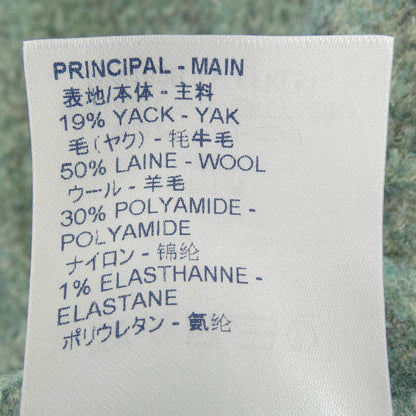 PRINCIPAL - MAIN
表地/本体 - 主料
19% YACK - YAK
毛(ヤク) - 牦牛毛
50% LAINE - WOOL
ウール - 羊毛
30% POLYAMIDE -
POLYAMIDE
ナイロン - 锦纶
1% ELASTHANNE -
ELASTANE
ポリウレタン - 氨纶